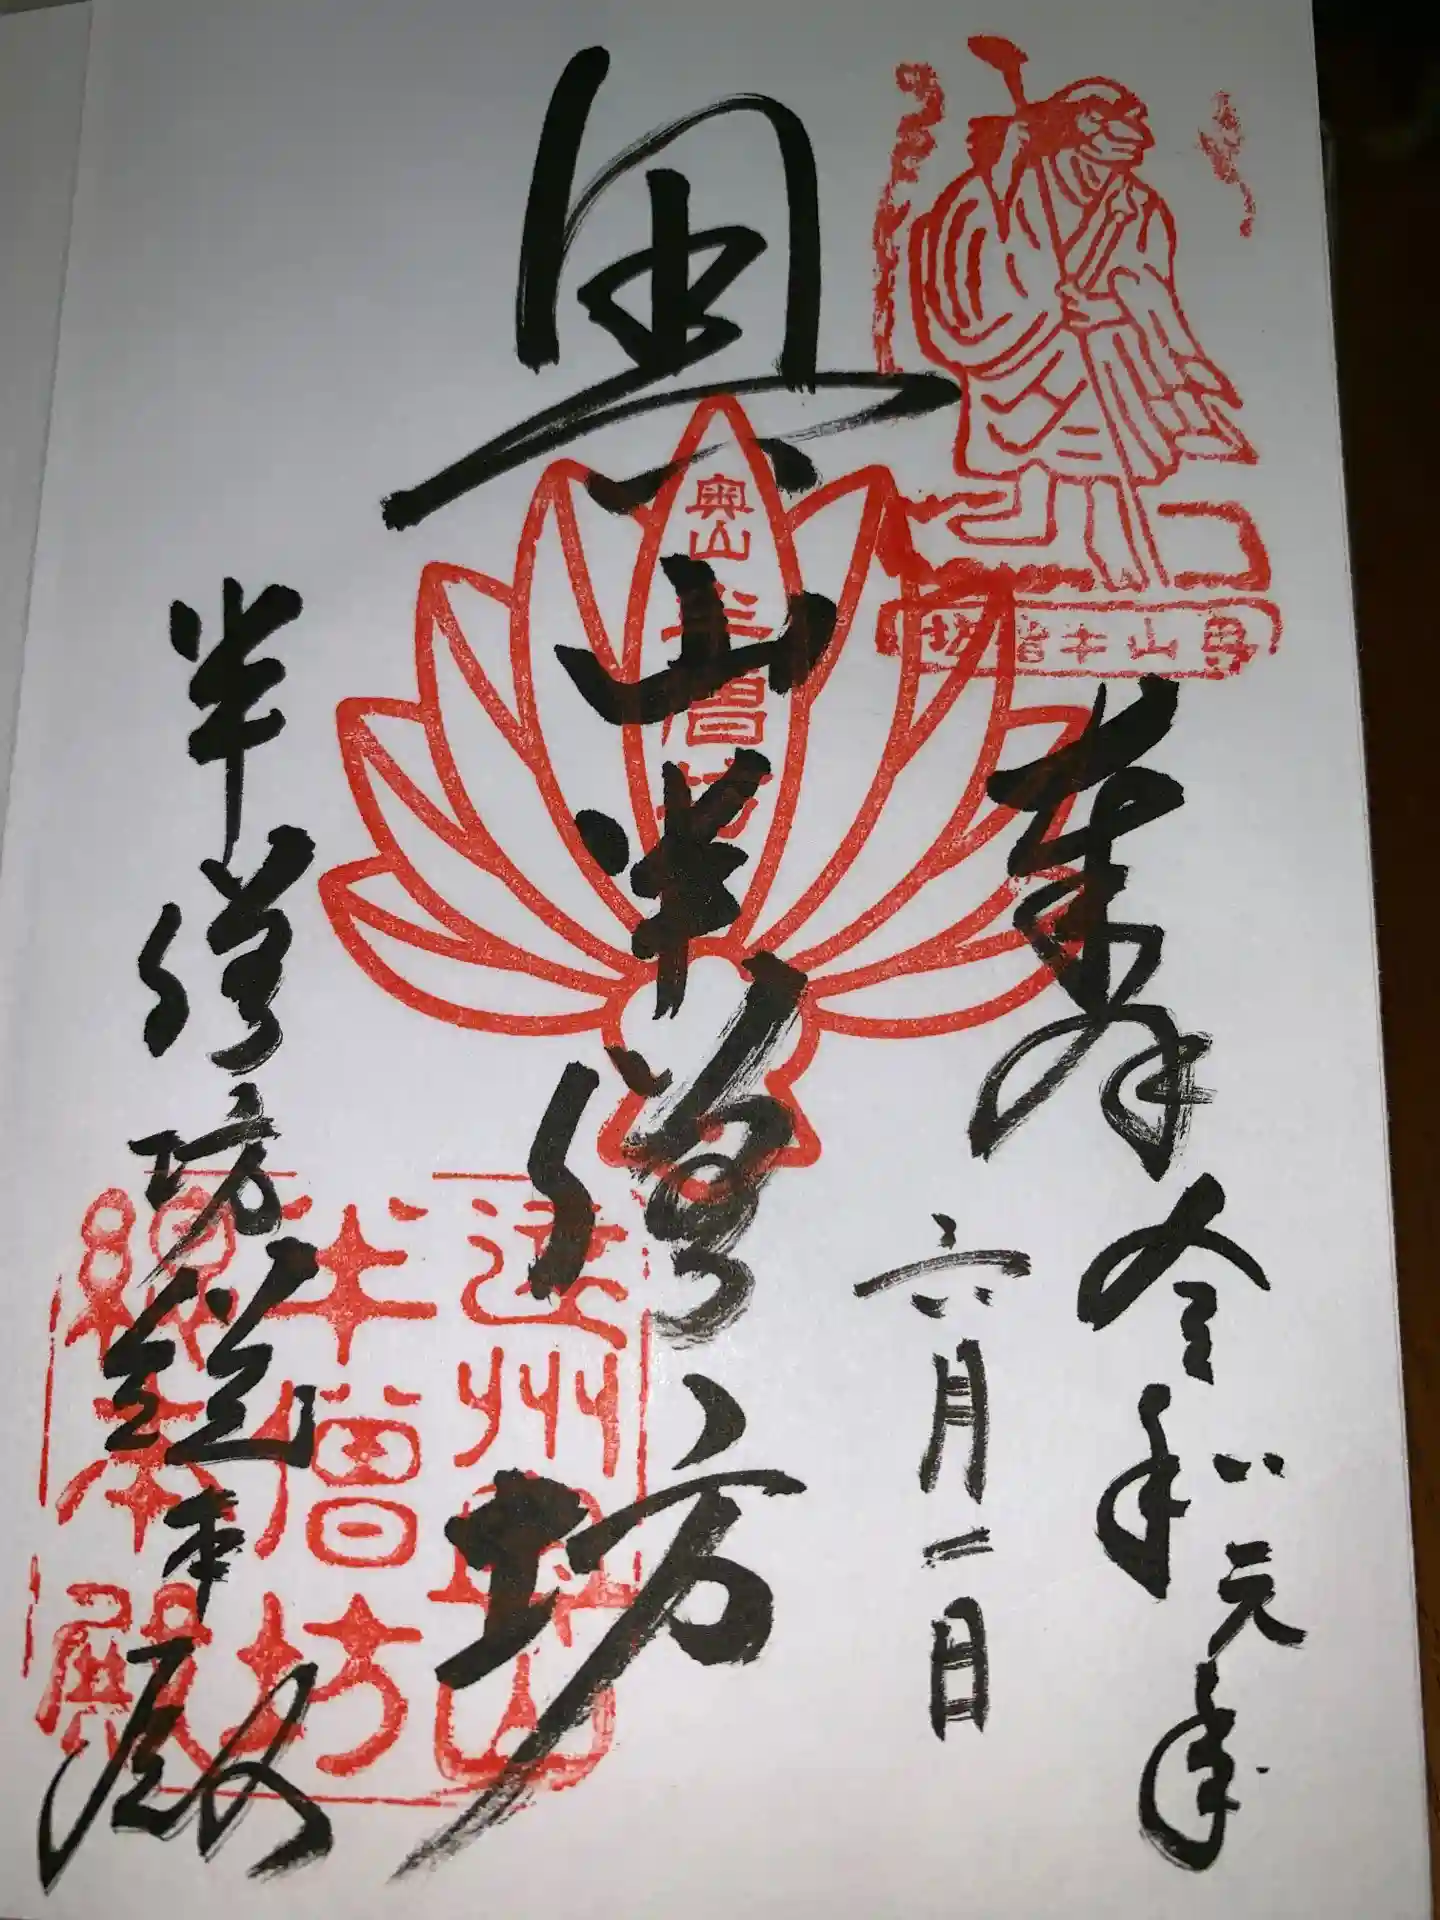 奉拝 令和元年
六月二日
奥山半僧坊
半僧坊総本殿
奥山半僧坊
奥山半僧坊
遠州奥山
半僧坊
総本殿